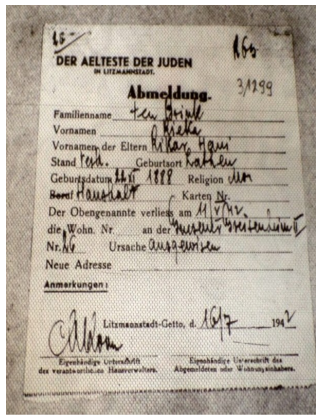 16-
165
DER AELTESTE DER JUDEN
IN LITZMANNSTADT.
3/1299
Abmeldung.
Familienname ten Brink
Vornamen
Vornamen der Eltern
Stand Geburtsort
Geburtsdatum XI 1888 Religion Mos
Beruf Haushalt Karten Nr.
Der Obengenannte verließ am 11/V/42.
die Wohn. Nr. an der
Nr. 26 Ursache Ausgewiesen
Neue Adresse
Anmerkungen:
Litzmannstadt-Getto, d. 16/7 1942
Eigenhändige Unterschrift Eigenhändige Unterschrift des
des verantwortlichen Hausverwalters. Abgemeldeten oder Wohnungsinhabers.